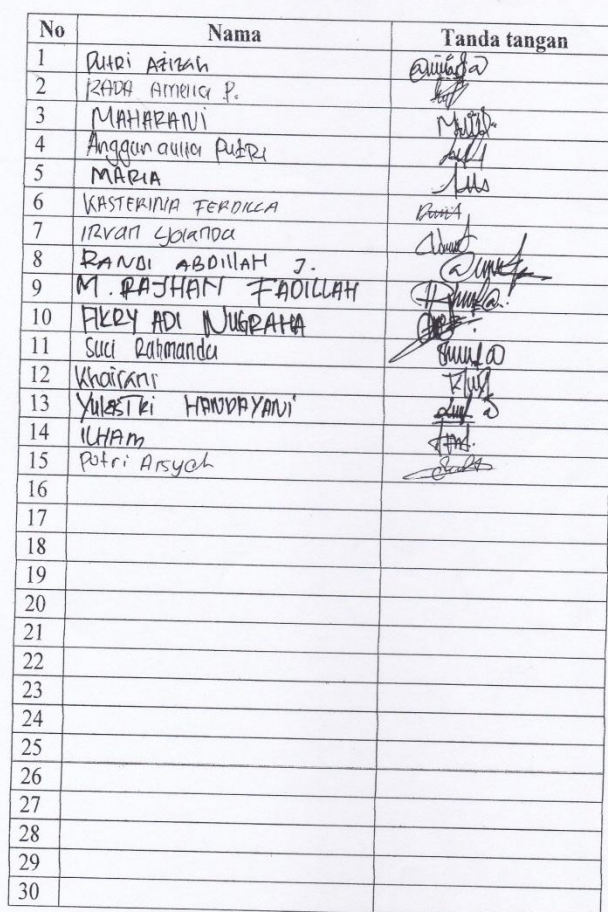 No Nama Tanda tangan
1 Putri Azizah
2 RADA Amelia P.
3 MAHARANI
4 Anggun aulia Putri
5 MARIA
6 KASTERINIA FERDILLA
7 IRvan Yolanda
8 RANDI ABDILLAH J.
9 M. RAJHAN FADILLAH
10 FIKRY ADI NUGRAHA
11 Suci Rahmanda
12 Khairani
13 YULASTRI HANDAYANI
14 ILHAM
15 Potri Arsyah
16
17
18
19
20
21
22
23
24
25
26
27
28
29
30